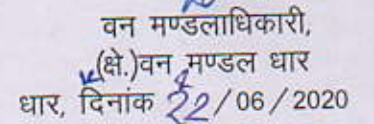 वन मण्डलाधिकारी,
(क्षे.)वन मण्डल धार
धार, दिनांक 22/06/2020